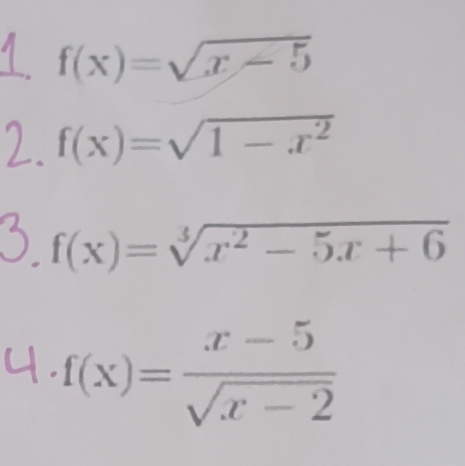 1. f(x)=√(x − 5)
2. f(x)=√(1 − x²)
3. f(x)=∛(x² − 5x + 6)
4. f(x)=(x − 5)/√(x − 2)